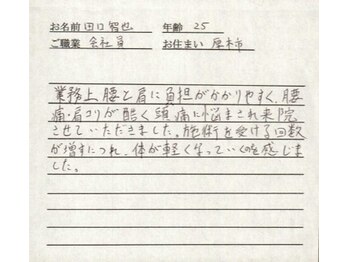 お名前 田口智也 年齢 25
ご職業 会社員 お住まい 厚木市
業務上、腰と肩に負担がかかりやすく、腰
痛・肩コリが酷く頭痛に悩まされ来院
させていただきました。施術を受ける回数
が増すにつれ、体が軽くなっていくのを感じま
した。